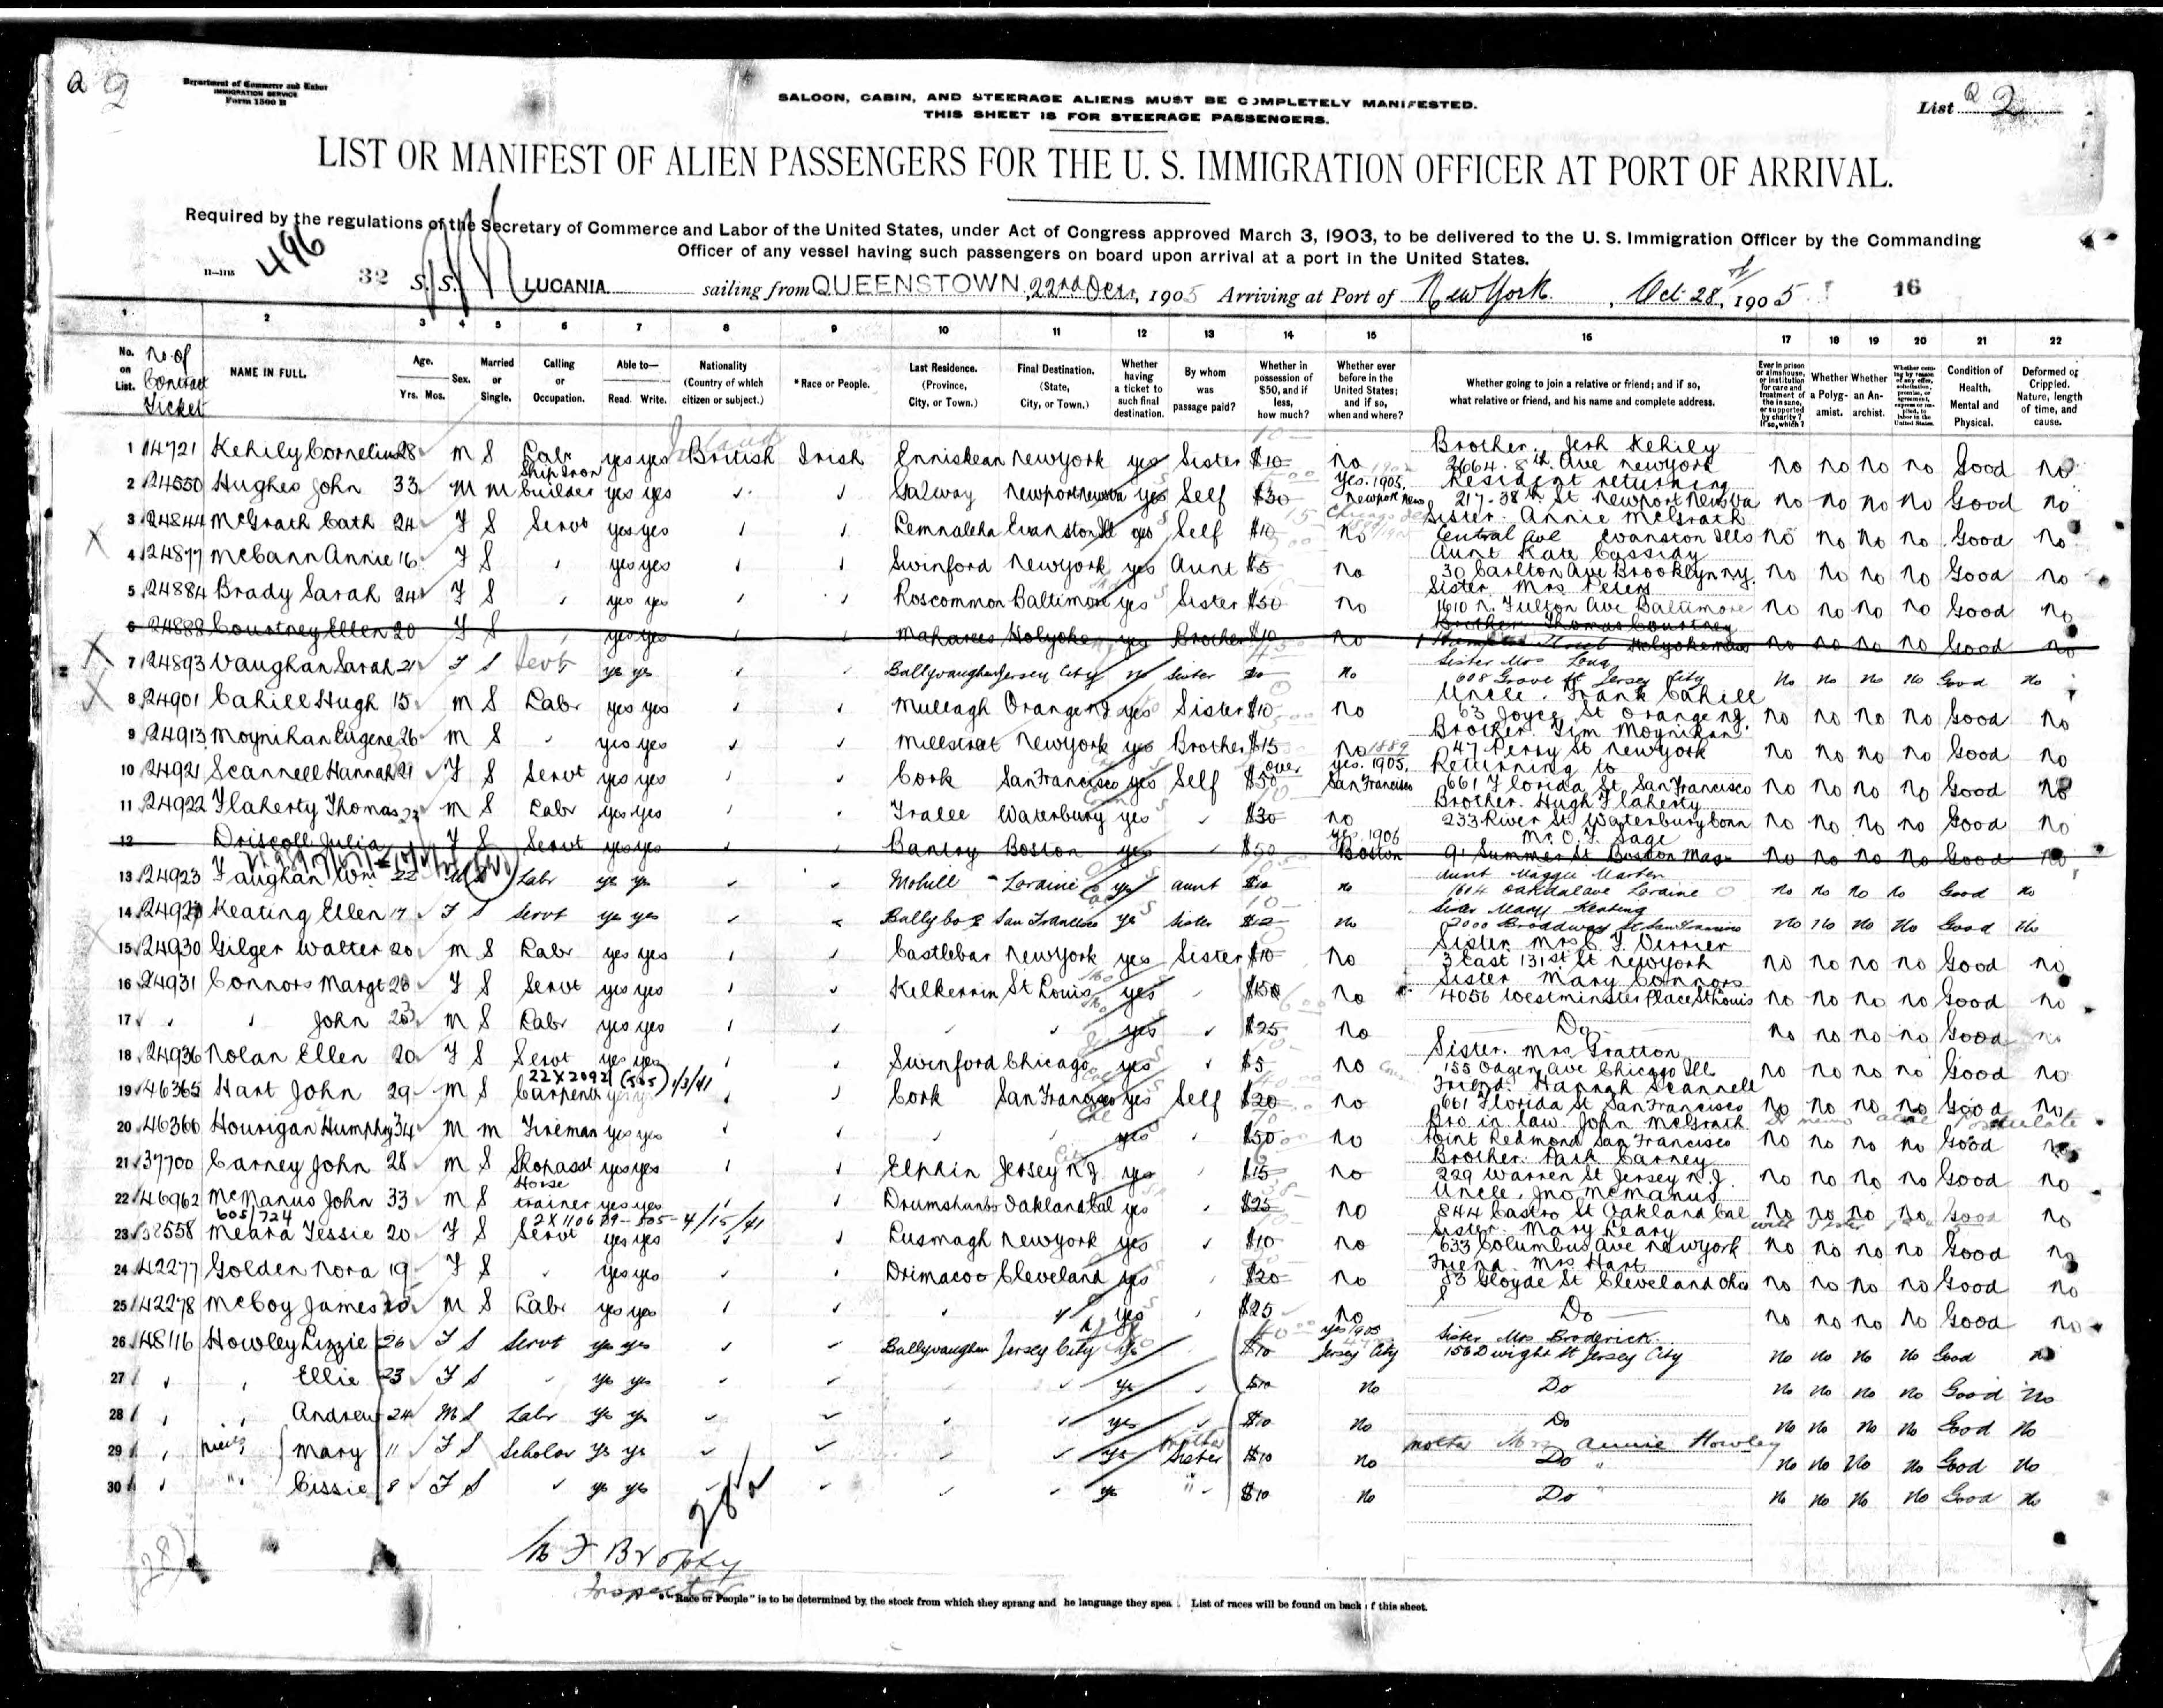 2 2
Department of Commerce and Labor
IMMIGRATION SERVICE
Form 1500 B
SALOON, CABIN, AND STEERAGE ALIENS MUST BE COMPLETELY MANIFESTED.
THIS SHEET IS FOR STEERAGE PASSENGERS.
List 2
LIST OR MANIFEST OF ALIEN PASSENGERS FOR THE U. S. IMMIGRATION OFFICER AT PORT OF ARRIVAL.
Required by the regulations of the Secretary of Commerce and Labor of the United States, under Act of Congress approved March 3, 1903, to be delivered to the U. S. Immigration Officer by the Commanding
Officer of any vessel having such passengers on board upon arrival at a port in the United States.
496
32 S.S. LUCANIA sailing from QUEENSTOWN, 22nd Octr, 1905 Arriving at Port of New York, Oct 28, 1905 16
1 2 3 4 5 6 7 8 9 10 11 12 13 14 15 16 17 18 19 20 21 22
No. on List. No of Contract Ticket NAME IN FULL. Age. Yrs. Mos. Sex. Married or Single. Calling or Occupation. Able to— Read. Write. Nationality (Country of which citizen or subject.) *Race or People. Last Residence. (Province, City, or Town.) Final Destination. (State, City, or Town.) Whether having a ticket to such final destination. By whom was passage paid? Whether in possession of $50, and if less, how much? Whether ever before in the United States; and if so, when and where? Whether going to join a relative or friend; and if so, what relative or friend, and his name and complete address. Ever in prison or almshouse, or institution for care and treatment of the insane, or supported by charity? If so, which? Whether a Polygamist. Whether an Anarchist. Condition of Health, Mental and Physical. Deformed or Crippled. Nature, length of time, and cause.
1 14721 Kehily Cornelius 28 M S Labr yes yes British Irish Enniskean New York yes Sister $10 no Brother. Jerh Kehily 2664. 8th Ave New York no no no no Good no
2 24550 Hughes John 33 M M Ship Iron builder yes yes Galway Newport News Va yes Self $30 yes. 1905. Newport News Resident returning 217-38th St Newport News Va no no no no Good no
3 24844 McGrath Cath 24 F S Servt yes yes Evanston Ill yes Self $10 no Sister. Annie McGrath Central Ave Evanston Ills no no no no Good no
4 24877 McCann Annie 16 F S yes yes Swinford New York yes Aunt $5 no Aunt Kate Cassidy 30 Carlton Ave Brooklyn N.Y. no no no no Good no
5 24884 Brady Sarah 24 F S yes yes Roscommon Baltimore yes Sister $50 no Sister Mrs Peters 1610 N. Fulton Ave Baltimore no no no no Good no
6 24888 Courtney Ellen 20 F S yes yes Maharees Holyoke yes Brother $10 no Brother Thomas Courtney Street Holyoke Mass no no no no Good no
7 24893 Vaughan Sarah 21 F S Servt yes yes Ballyvaughan Jersey City Sister no Sister Mrs Long 608 Grove St Jersey City no no no no Good no
8 24901 Cahill Hugh 15 M S Labr yes yes Mullagh Orange NJ yes Sister $10 no Uncle. Frank Cahill 63 Joyce St Orange N.J. no no no no Good no
9 24913 Moynihan Eugene 26 M S yes yes Millstreet New York yes Brother $15 no Brother. Tim Moynihan. 47 Perry St New York no no no no Good no
10 24921 Scannell Hannah 21 F S Servt yes yes Cork San Francisco yes Self over $50 yes. 1905. San Francisco Returning to 661 Florida St San Francisco no no no no Good no
11 24922 Flaherty Thomas 23 M S Labr yes yes Tralee Waterbury yes $30 no Brother. Hugh Flaherty 233 River St Waterbury Conn no no no no Good no
12 Driscoll Julia F S Servt yes yes Bantry Boston yes $50 yes Boston Mr. O. F. Sage 91 Summer St Boston Mass no no no no Good no
13 24923 Faughan Wm 22 M S Labr yes yes Mohill Loraine yes aunt $10 no Aunt Maggie Marten 1604 Oakdale ave Loraine O no no no no Good no
14 Keating Ellen 17 F S Servt yes yes San Francisco yes Sister no Sister Mary Keating 2000 Broadway St San Francisco no no no no Good no
15 24930 Gilger Walter 20 M S Labr yes yes Castlebar New York yes Sister $10 no 3 East 131st St New York no no no no Good no
16 24931 Connors Margt 20 F S Servt yes yes Kilkerrin St Louis yes $150 no Sister Mary Connors 4056 Westminster Place St Louis no no no no Good no
17 John M S Labr yes yes yes $25 no Do no no no no Good no
18 24936 Nolan Ellen 20 F S Servt yes yes Swinford Chicago yes $5 no Sister. Mrs Gratton 155 Ogden Ave Chicago Ill no no no no Good no
22 X 2092 (505) 1/3/41
19 46365 Hart John 29 M S Carpenter yes yes Cork San Francisco yes Self $20 no Friend. Hannah Scannell 661 Florida St San Francisco no no no no Good no
20 46366 Hourigan Humphry 34 M M Fireman yes yes yes $50 no Bro in law John McGrath Point Redmond San Francisco no no no no Good no
21 37700 Carney John 28 M S Shopasst yes yes Elphin Jersey N.J. yes $15 no Brother. Patk Carney 229 Warren St Jersey N.J. no no no no Good no
22 46962 McManus John 33 M S Horse trainer yes yes Drumshanbo Oakland Cal yes $25 no Uncle, Jno McManus 844 Castro St Oakland Cal no no no no Good no
605/724 2 X 110679-505- 4/15/41
23 Meara Jessie 20 F S Servt yes yes Lusmagh New York yes $10 no Sister. Mary Leary 633 Columbus Ave New York no no no no Good no
24 42277 Golden Nora 19 F S yes yes Drimacoo Cleveland yes $20 no Friend. Mrs Hart 83 Gloyde St Cleveland Ohio no no no no Good no
25 42278 McCoy James 20 M S Labr yes yes yes $25 no Do no no no no Good no
26 48116 Howley Lizzie 26 F S Servt yes yes Ballyvaughan Jersey City yes $10 yes 1905 Jersey City Sister Mrs Broderick. 156 Dwight St Jersey City no no no no Good no
27 Ellie 23 F S yes yes yes $10 no Do no no no no Good no
28 Andrew 24 M S Labr yes yes yes $10 no Do no no no no Good no
29 nieces Mary 11 F S Scholar yes yes yes Sister $10 no mother Mrs Annie Howley Do no no no no Good no
30 Cissie 8 F S yes yes yes " $10 no Do no no no no Good no
28
Brophy
Inspector
*"Race or People" is to be determined by the stock from which they sprang and he language they spea . List of races will be found on back f this sheet.